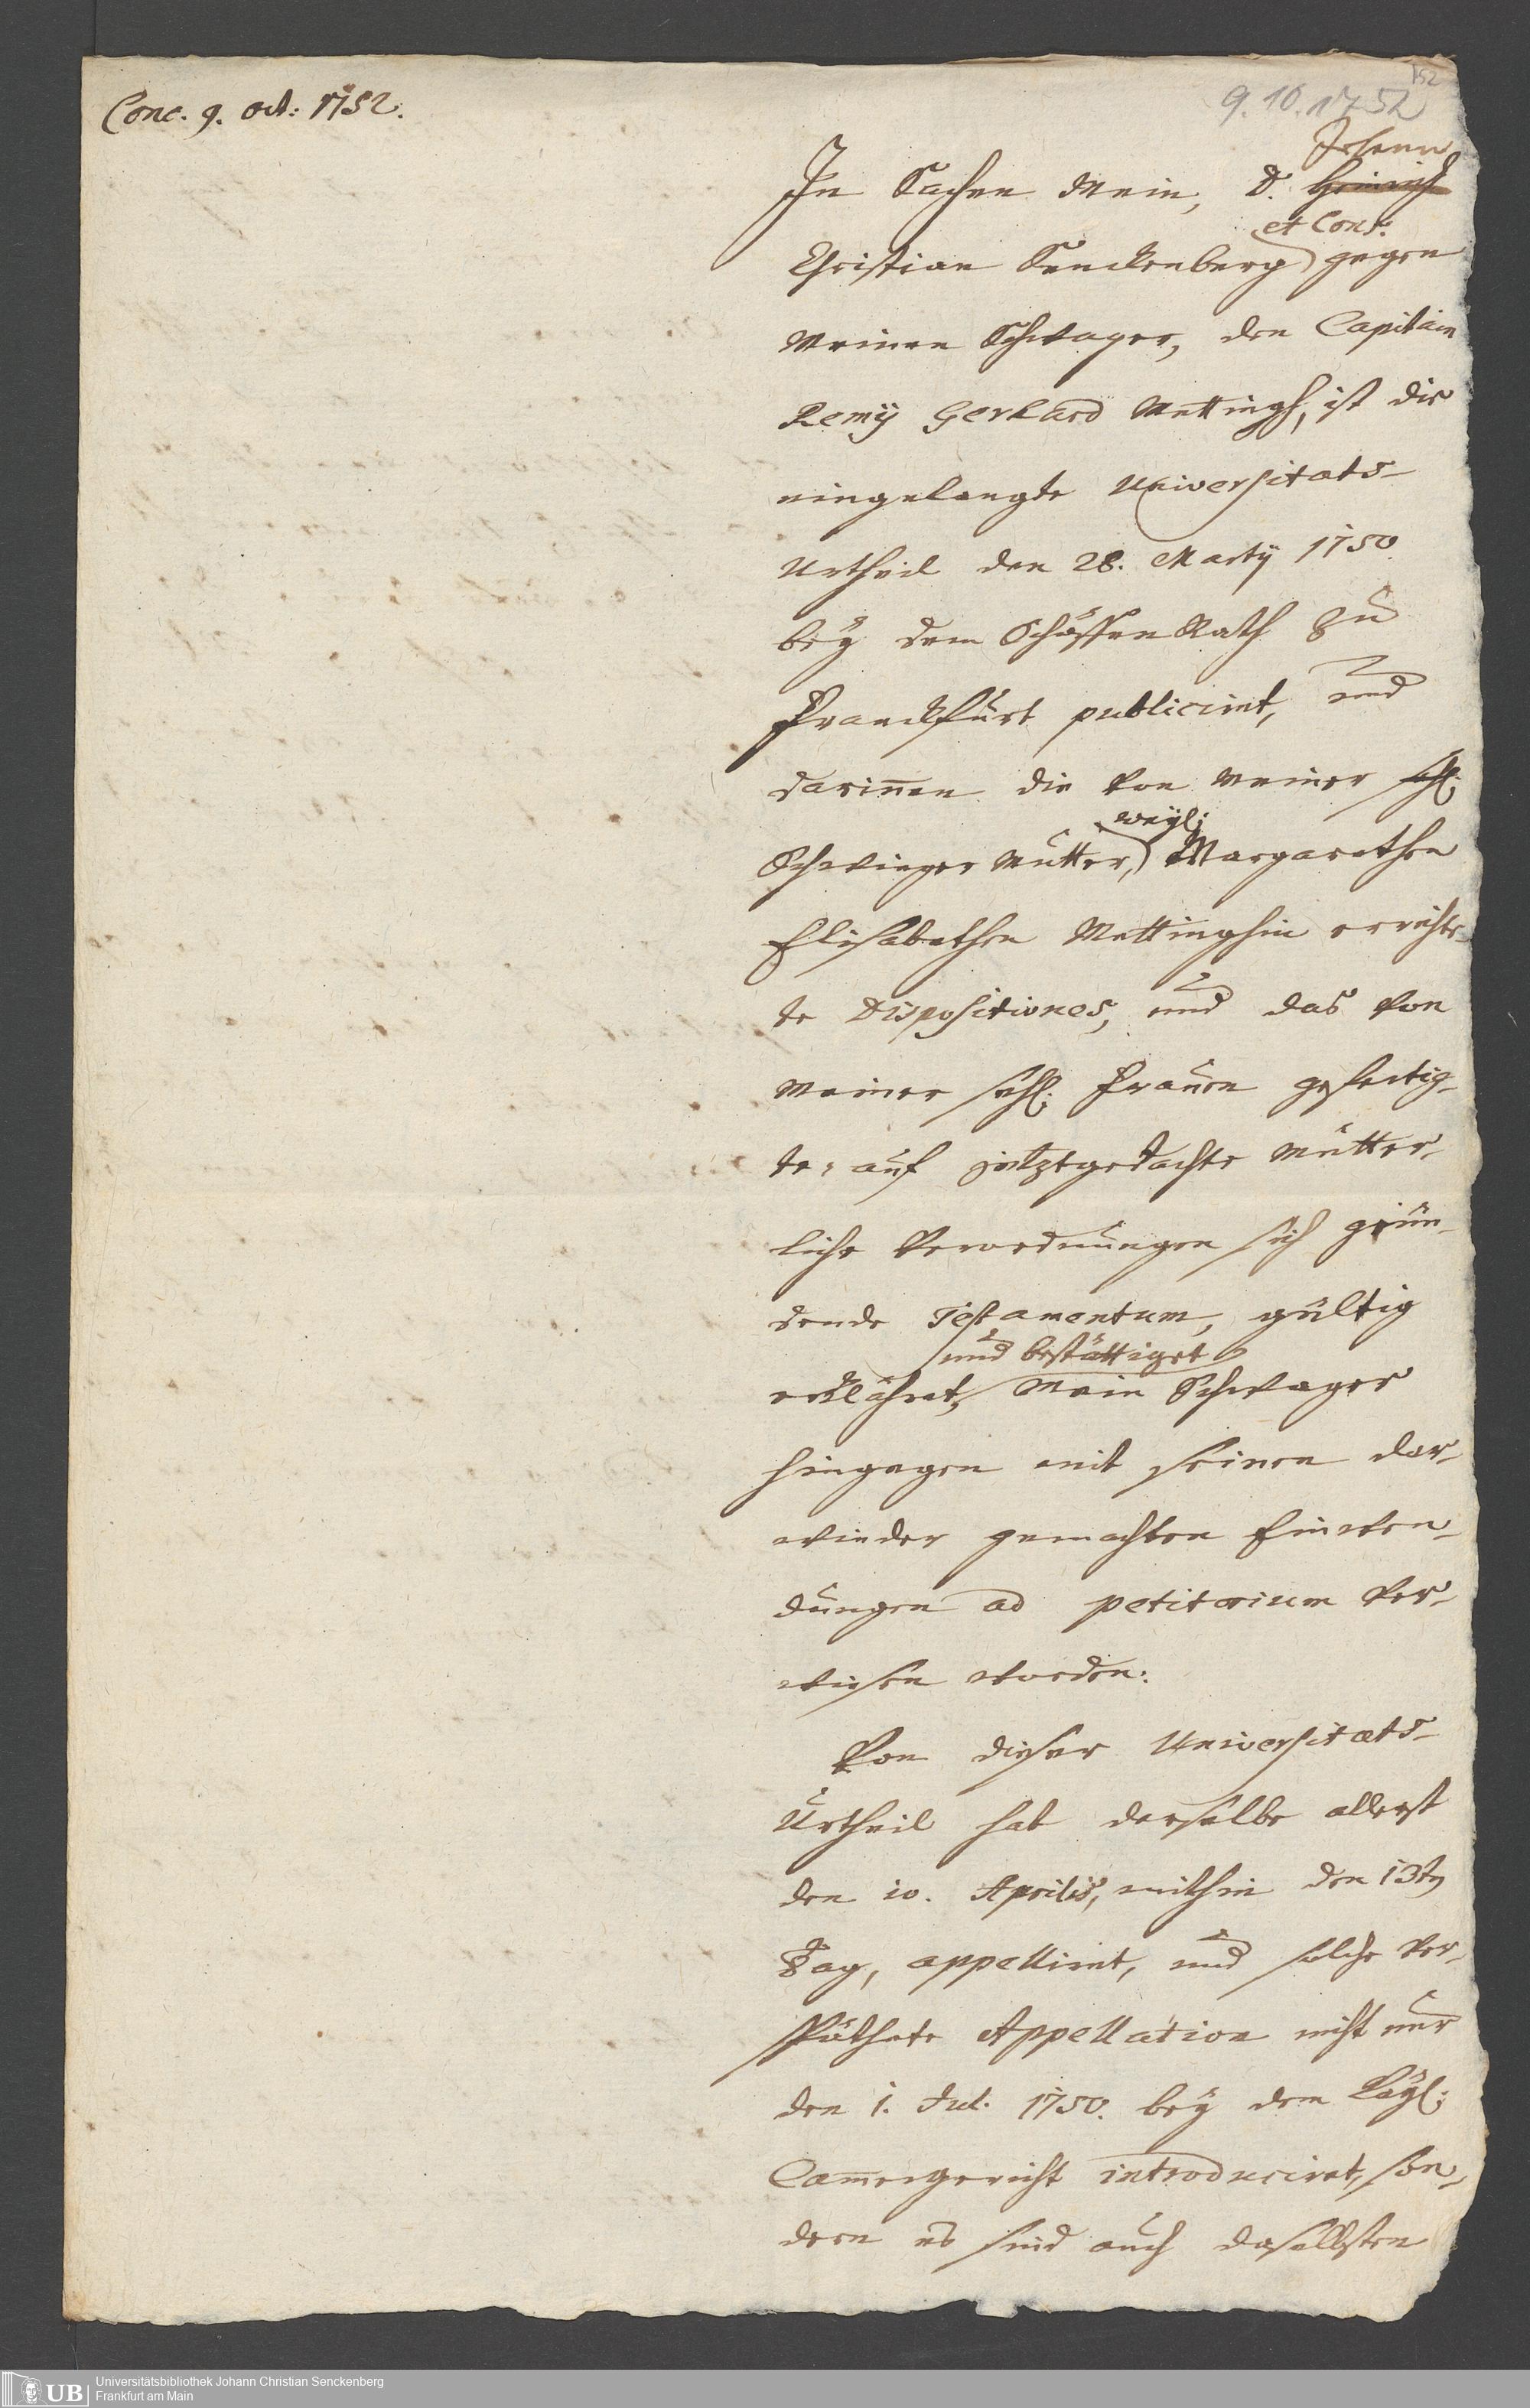 Conc. 9. oct: 1752.
152
9.10.1752
Johann
In Sachen Mein, D. Heinrich
et Cons:
Christian Senckenberg gegen
meinen Schwager, den Capitain
Remÿ Gerhard Mettingh, ist die
eingelangte Universitats-
Urtheil den 28. Martÿ 1750
beÿ dem Schöffen Rath zu
Franckfurt publicirt, und
darinnen die von meiner seel.
weÿl:
Schwieger Mutter, Margarethen
Elisabethen Mettinghin errichte-
te Dispositiones, und das von
meiner seel. Frauen gefertig-
te, auf jetztgedachte Mütter-
liche Verordnungen sich grün-
dende Testamentum, gültig
und bestättiget
erklähret, Mein Schwager
hingegen mit seinen dar-
wieder gemachten Einwen-
dungen ad petitorium ver-
wiesen worden.
Von dieser Universitæts-
Urtheil hat derselbe allerst
den 10. Aprilis, mithin den 13ten
Tag, appellirt, und solche ver-
späthete Appellation nicht nur
den 1. Jul. 1750. beÿ dem Kaÿl.
Cammergericht introduciret, son-
dern es sind auch daselbsten
Universitätsbibliothek Johann Christian Senckenberg
Frankfurt am Main
UB